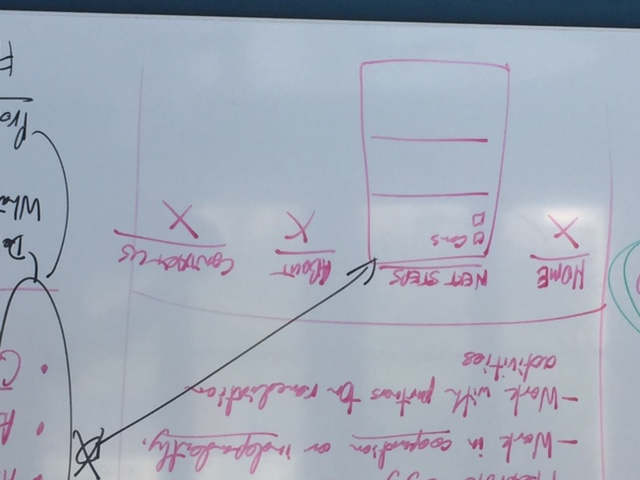 - Work in cooperation or independently.
- Work with partners on remediation
activities
HOME
NEXT STEPS
ABOUT
CONTACT US
X
X
X
Cons
De
Wha
Pro
F